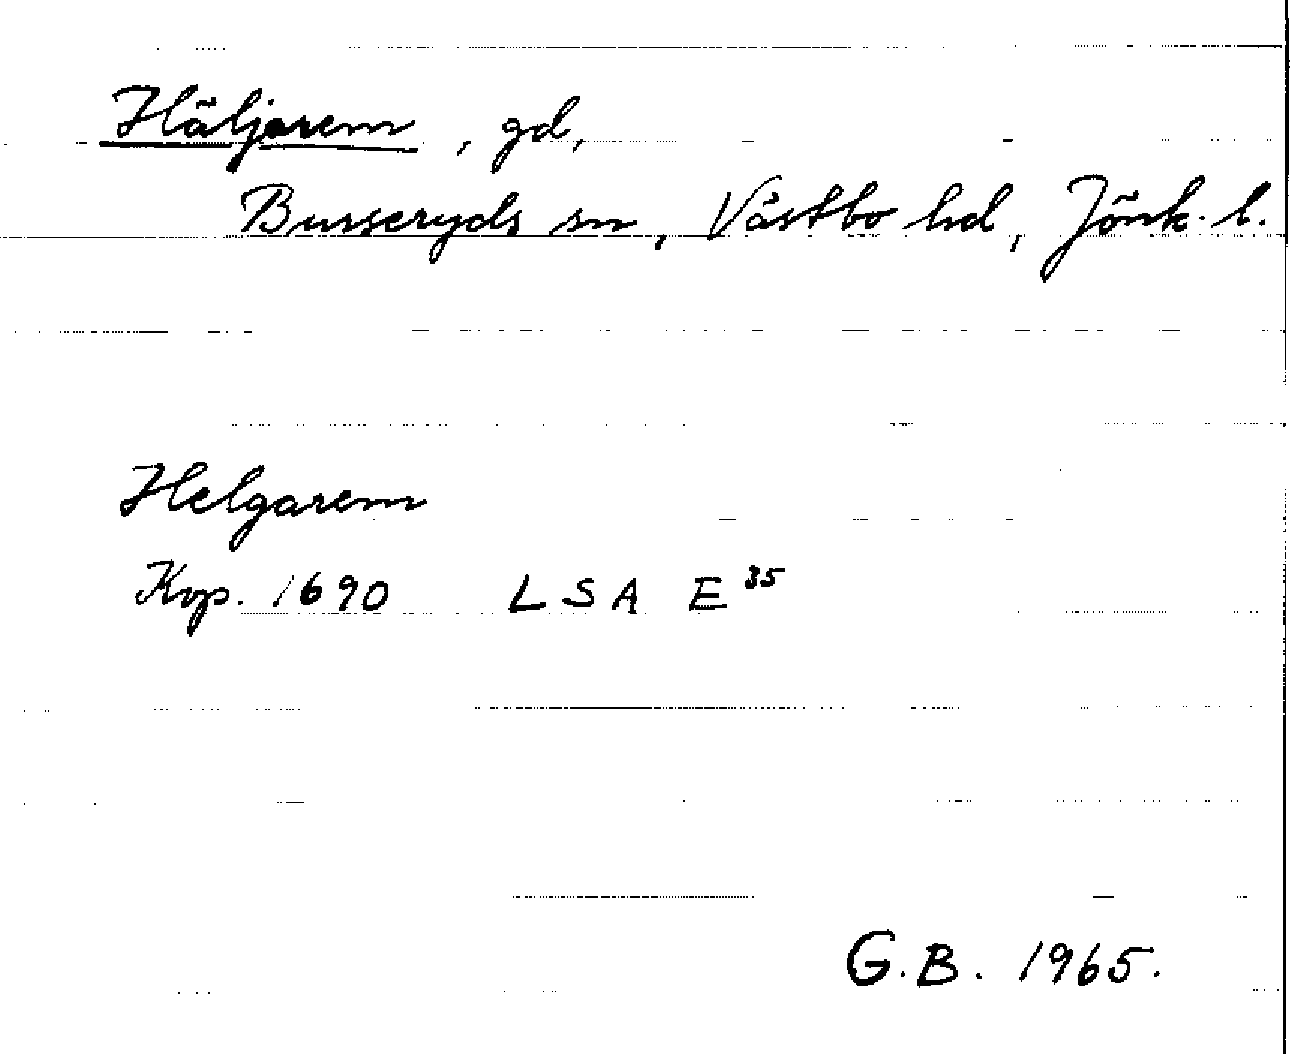 Häljarem, gd,
Burseryds sn, Västbo hd, Jönk. l.
Helgarem
Kop. 1690 LSA E 35
G.B. 1965.